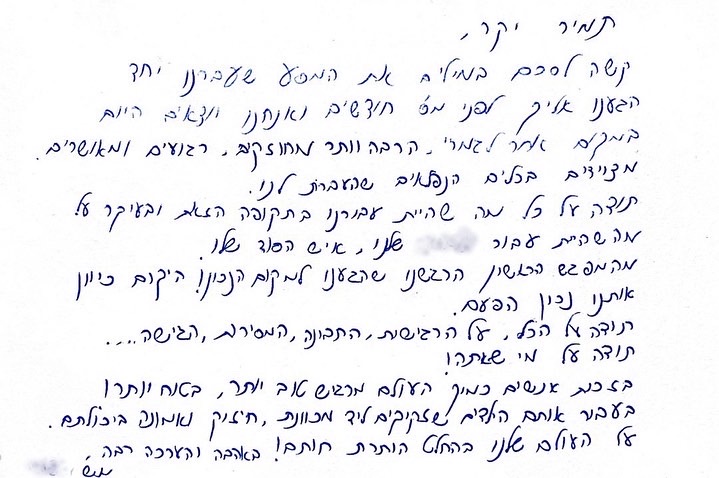 תמיר יקר,
קשה לסכם במילים את המסע שעברנו יחד
הגענו אליך לפני מס' חודשים ואנחנו יוצאים היום
במקום אחר לגמרי, הרבה יותר מחוזקים, רגועים ומאושרים
מצוידים בכלים הנפלאים שהעברת לנו.
תודה על כל מה שהיית עבורנו בתקופה הזאת ובעיקר על
מה שהית עבור שלנו, איש הסוד שלו.
מהמפגש הראשון הרגשנו שהגענו למקום הנכון! היקום כיוון
אותנו נכון הפעם.
תודה על הכל, על הרגישות, התבונה, המסירות, הגישה....
תודה על מי שאתה!
בזכות אנשים כמוך העולם מרגיש טוב יותר, בטוח יותר!
בעבור אותם הילדים שזקוקים ליד מכוונת, חיזוק ואמונה ביכולתם.
על העולם שלנו בהחלט הותרת חותם! באהבה והערכה רבה,